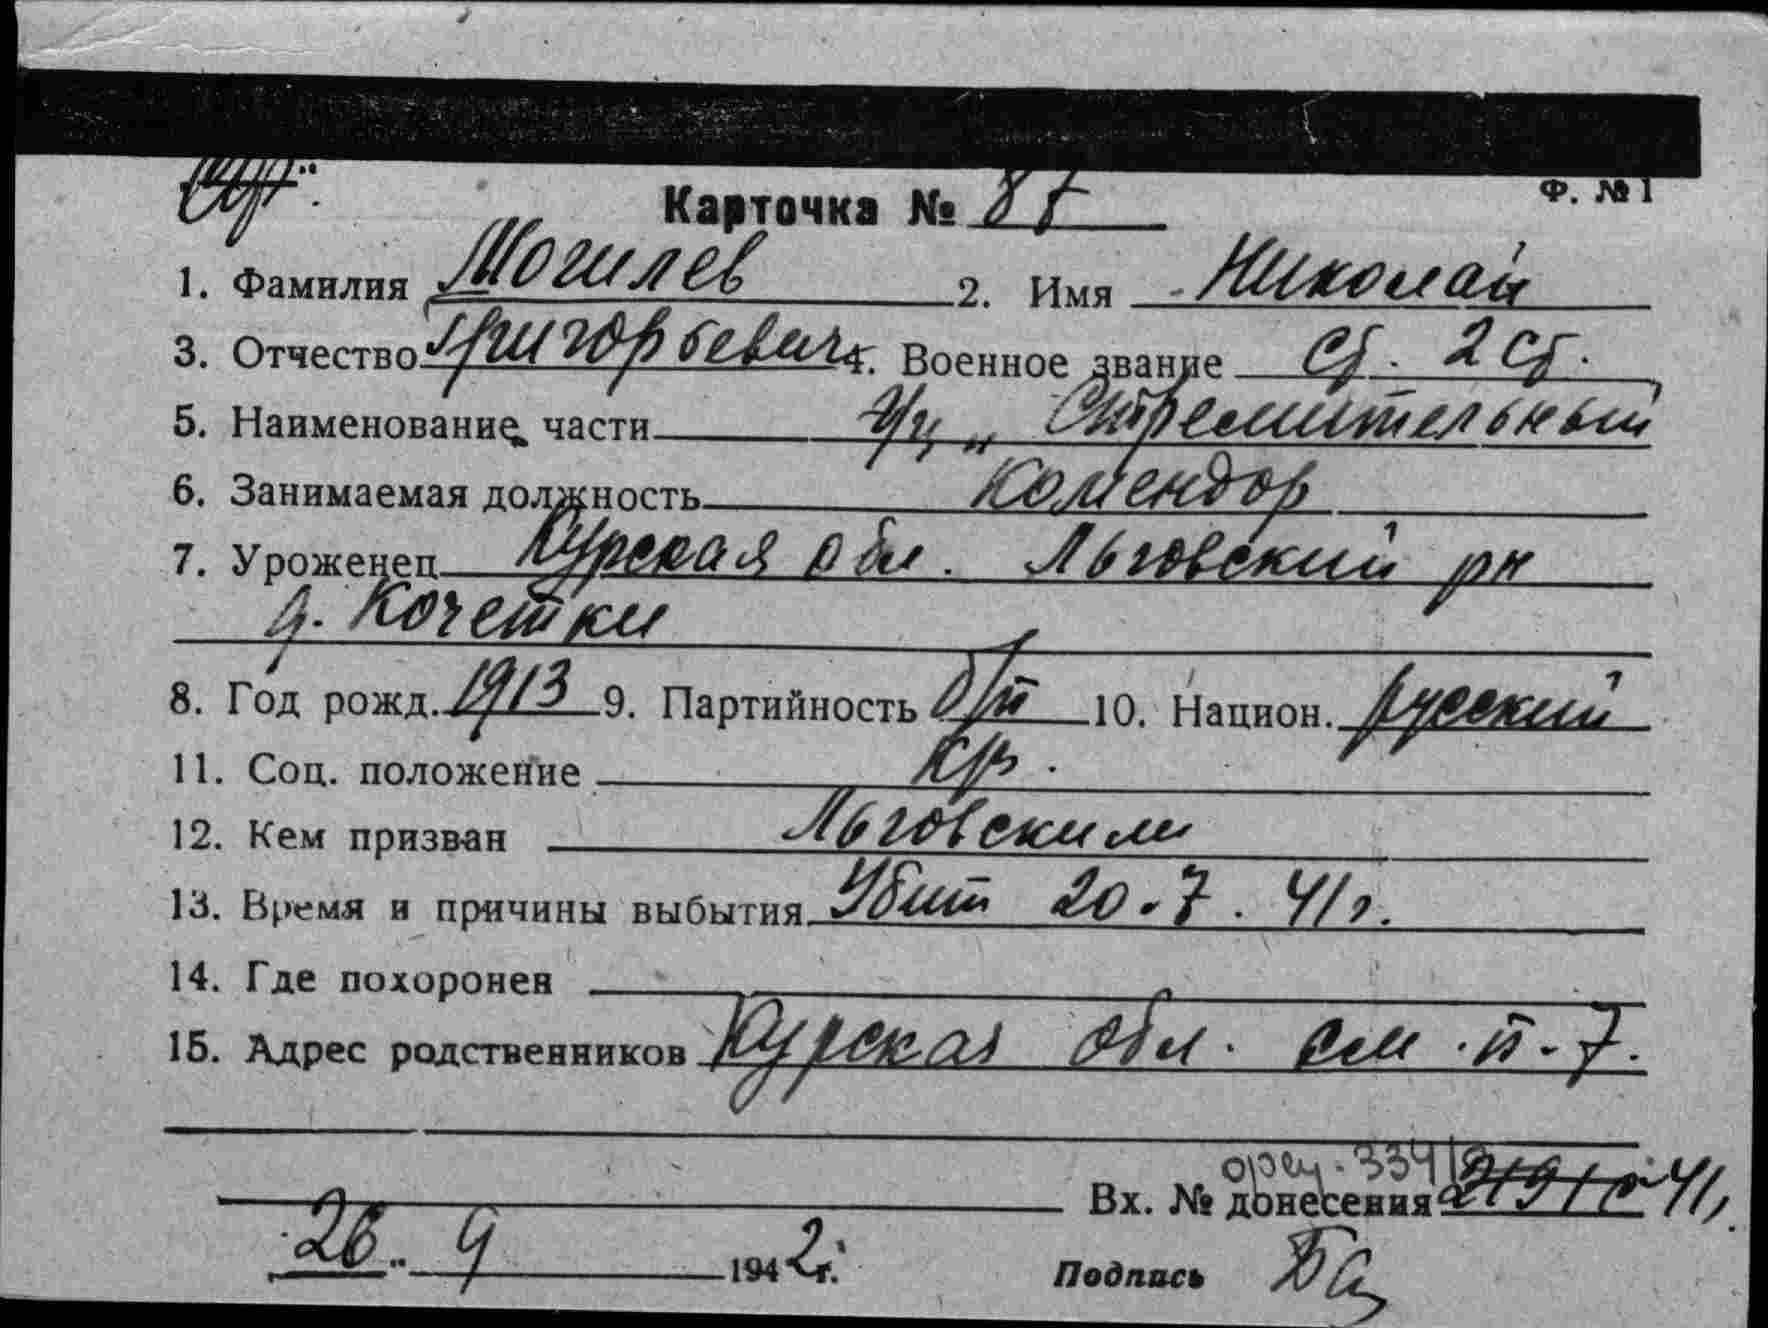 Ф. № 1
Карточка № 87
1. Фамилия Могилев 2. Имя Николай
3. Отчество Григорьевич 4. Военное звание ст. 2 ст.
5. Наименование части э/м „Стремительный
6. Занимаемая должность Комендор
7. Уроженец Курская обл. Льговский рн
д. Кочетки
8. Год рожд. 1913 9. Партийность б/п 10. Национ. русский
11. Соц. положение кр.
12. Кем призван Льговским
13. Время и причины выбытия Убит 20.7.41г.
14. Где похоронен
15. Адрес родственников Курская обл. см. п-7.
Вх. № донесения 41
26 „ 9 1942г.
Подпись